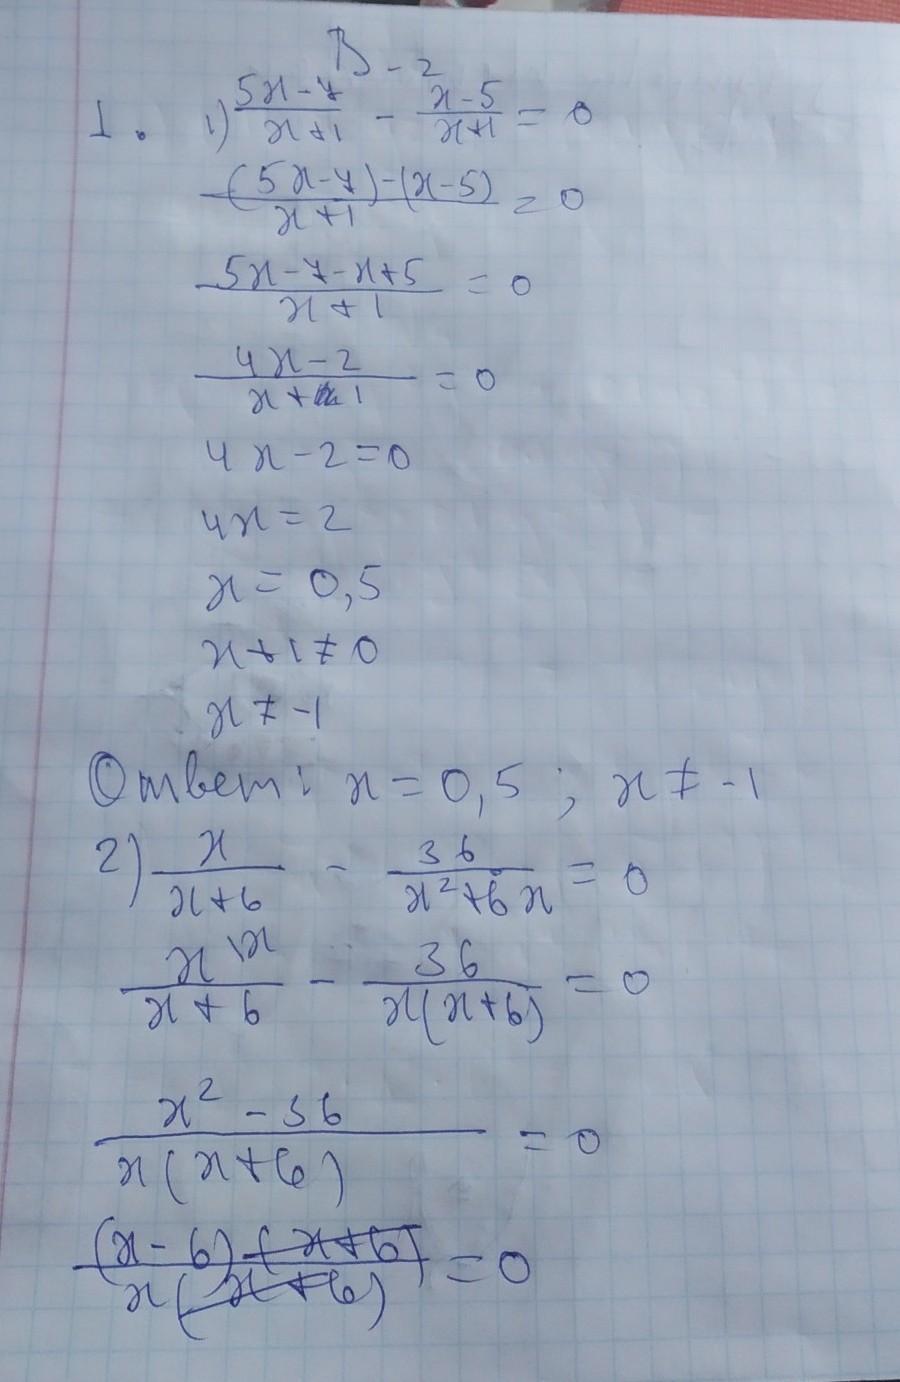 В-2
1. 1) (5x-7)/(x+1) - (x-5)/(x+1) = 0
((5x-7)-(x-5))/(x+1) = 0
(5x-7-x+5)/(x+1) = 0
(4x-2)/(x+1) = 0
4x-2=0
4x=2
x=0,5
x+1≠0
x≠-1
Ответ: x=0,5; x≠-1
2) x/(x+6) - 36/(x²+6x) = 0
x\x/(x+6) - 36/(x(x+6)) = 0
(x²-36)/(x(x+6)) = 0
((x-6)(x+6))/(x(x+6)) = 0